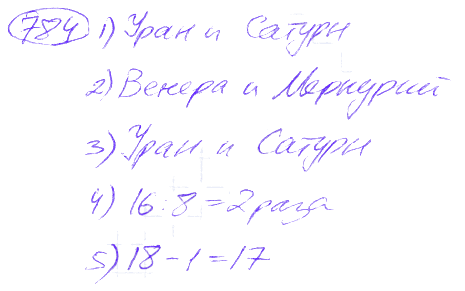 784 1) Уран и Сатурн
2) Венера и Меркурий
3) Уран и Сатурн
4) 16 : 8 = 2 раза
5) 18 - 1 = 17